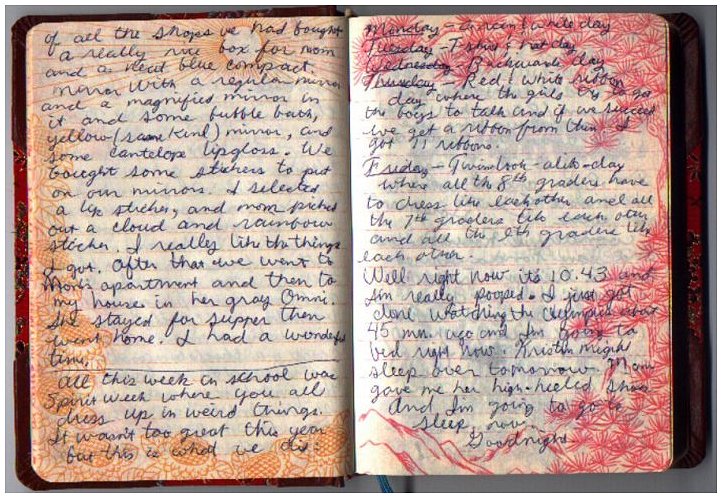 of all the shops we had bought
a really nice box for mom
and a neat blue compact
mirror with a regular mirror
and a magnified mirror in
it and some bubble bath,
yellow (same kind) mirror, and
some cantelope lipgloss. We
bought some stickers to put
on our mirrors. I selected
a lip sticker, and mom picked
out a cloud and rainbow
sticker. I really like the things
I got. After that we went to
Mom's apartment and then to
my house in her gray Omni.
She stayed for supper then
went home. I had a wonderful
time.
All this week in school was
Spirit week where you all
dress up in weird things.
It wasn't too great this year
but this is what we did:
Monday - Green & white day
Tuesday - T-shirt & hat day
Wednesday - Backwards day
Thursday - Red & white ribbon
day where the girls try to get
the boys to talk and if we succeed
we get a ribbon from them. I
got 11 ribbons.
Friday - Twin look-alike-day
where all the 8th graders have
to dress like eachother and all
the 7th graders like each other
and all the 6th graders like
each other.
Well right now it's 10:43 and
I'm really pooped. I just got
done watching the Olympics about
45 mn. ago and I'm going to
bed right now. Kristin might
sleep over tomorrow. Mom
gave me her high-heeled shoes
and I'm going to go to
sleep now.
Goodnight